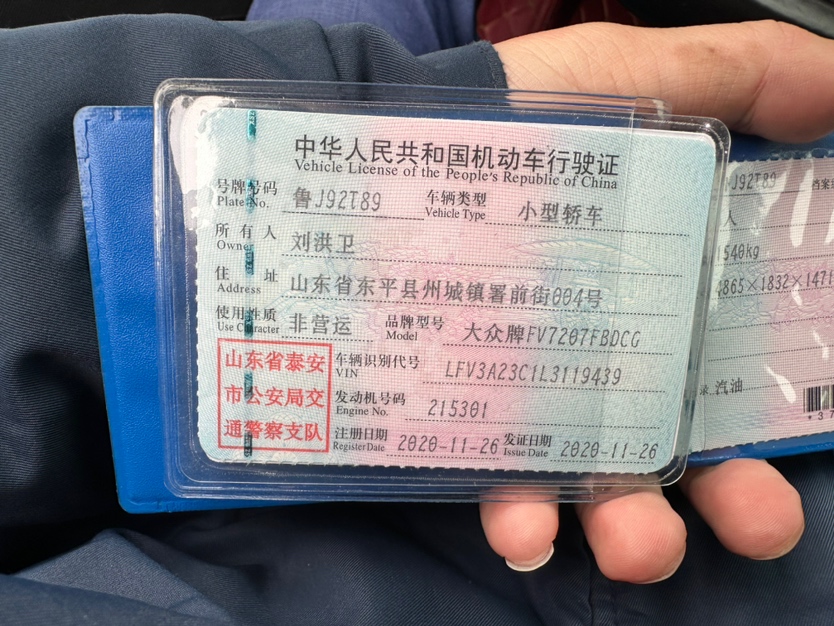 中华人民共和国机动车行驶证
Vehicle License of the People's Republic of China
号牌号码 鲁J92T89 车辆类型 小型轿车
Plate No. Vehicle Type
所有人 刘洪卫
Owner
住址 山东省东平县州城镇署前街004号
Address
使用性质 非营运 品牌型号 大众牌FV7207FBDCG
Use Character Model
山东省泰安
市公安局交
通警察支队
车辆识别代号 LFV3A23C1L3119439
VIN
发动机号码 215301
Engine No.
注册日期 2020-11-26 发证日期 2020-11-26
Register Date Issue Date
J92T89
人
1540kg
4865×1832×1471
汽油